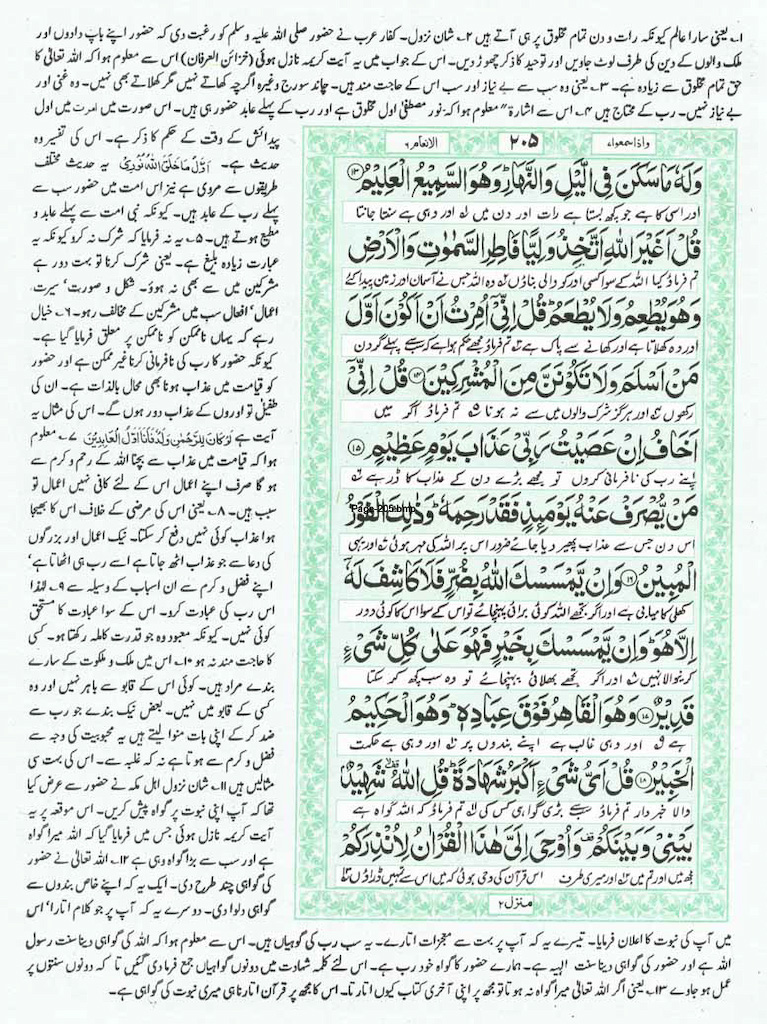 ۱۔ یعنی سارا عالم کیونکہ رات و دن تمام مخلوق پر ہی آتے ہیں ۲۔ شان نزول۔ کفار عرب نے حضور صلی اللہ علیہ وسلم کو رغبت دی کہ حضور اپنے باپ دادوں اور
ملک والوں کے دین کی طرف لوٹ جاویں اور توحید کا ذکر چھوڑ دیں۔ اس کے جواب میں یہ آیت کریمہ نازل ہوئی (خزائن العرفان) اس سے معلوم ہوا کہ اللہ تعالیٰ کا
حق تمام مخلوق سے زیادہ ہے۔ ۳۔ یعنی وہ سب سے بے نیاز اور سب اس کے حاجت مند ہیں۔ چاند سورج وغیرہ اگرچہ کھاتے نہیں مگر کھلاتے بھی نہیں۔ وہ غنی اور
بے نیاز نہیں۔ رب کے محتاج ہیں ۴۔ اس سے اشارۃً معلوم ہوا کہ نور مصطفیٰ اول مخلوق ہے اور رب کے پہلے عابد حضور ہی ہیں۔ اس صورت میں امرت میں اول
پیدائش کے وقت کے حکم کا ذکر ہے۔ اس کی تفسیر وہ
حدیث ہے۔ اَوَّلُ مَا خَلَقَ اللّٰهُ نُوْرِیْ یہ حدیث مختلف
طریقوں سے مروی ہے نیز اس امت میں حضور سب سے
پہلے رب کے عابد ہیں۔ کیونکہ نبی امت سے پہلے عابد و
مطیع ہوتے ہیں۔ ۵۔ یہ نہ فرمایا کہ شرک نہ کرو کیونکہ یہ
عبارت زیادہ بلیغ ہے۔ یعنی شرک کرنا تو بہت دور ہے
مشرکین میں سے بھی نہ ہوؤ۔ شکل و صورت، سیرت،
اعمال، افعال سب میں مشرکین کے مخالف رہو۔ ۶۔ خیال
رہے کہ یہاں ناممکن کو ناممکن پر معلق فرمایا گیا ہے۔
کیونکہ حضور کا رب کی نافرمانی کرنا غیر ممکن ہے اور حضور
کو قیامت میں عذاب ہونا بھی محال بالذات ہے۔ ان کی
طفیل تو اوروں کے عذاب دور ہوں گے۔ اس کی مثال یہ
آیت ہے لَوْ كَانَ لِلرَّحْمٰنِ وَلَدٌ فَاَنَا اَوَّلُ الْعَابِدِیْنَ ۷۔ معلوم
ہوا کہ قیامت میں عذاب سے بچنا اللہ کے رحم و کرم سے
ہو گا صرف اپنے اعمال اس کے لئے کافی نہیں اعمال تو
سبب ہیں۔ ۸۔ یعنی اس کی مرضی کے خلاف اس کا بھیجا
ہوا عذاب کوئی نہیں دفع کر سکتا۔ نیک اعمال اور بزرگوں
کی دعا سے جو عذاب اٹھ جاتا ہے اسے رب ہی اٹھاتا ہے،
اپنے فضل و کرم سے ان اسباب کے وسیلہ سے ۹۔ لہٰذا
اس رب کی عبادت کرو۔ اس کے سوا عبادت کا مستحق
کوئی نہیں۔ کیونکہ معبود وہ جو قدرت کاملہ رکھتا ہو۔ کسی
کا حاجت مند نہ ہو ۱۰۔ اس میں ملک و ملکوت کے سارے
بندے مراد ہیں۔ کوئی اس کے قابو سے باہر نہیں اور وہ
کسی کے قابو میں نہیں۔ بعض نیک بندے جو رب سے
ضد کر کے اپنی بات منوا لیتے ہیں یہ محبوبیت کی وجہ سے
فضل و کرم سے ہو تا ہے نہ کہ غلبہ سے۔ اس کی بہت سی
مثالیں ہیں ۱۱۔ شان نزول اہل مکہ نے حضور سے عرض کیا
تھا کہ آپ اپنی نبوت پر گواہ پیش کریں۔ اس موقعہ پر یہ
آیت کریمہ نازل ہوئی جس میں فرمایا گیا کہ اللہ میرا گواہ
ہے اور سب سے بڑا گواہ وہی ہے ۱۲۔ اللہ تعالیٰ نے حضور
کی گواہی چند طرح دی۔ ایک یہ کہ اپنے خاص بندوں سے
گواہی دلوا دی۔ دوسرے یہ کہ آپ پر جو کلام اتارا، اس
وَاذَاسَمِعُوْا ۲۰۵ الانعام ۶
وَلَهٗ مَا سَكَنَ فِی الَّیْلِ وَالنَّهَارِ وَهُوَ السَّمِیْعُ الْعَلِیْمُ ۱۳
اور اسی کا ہے جو کچھ بستا ہے رات اور دن میں اور وہی ہے سنتا جانتا
قُلْ اَغَیْرَ اللّٰهِ اَتَّخِذُ وَلِیًّا فَاطِرِ السَّمٰوٰتِ وَالْاَرْضِ
تم فرماؤ کیا اللہ کے سوا کسی اور کو والی بناؤں وہ اللہ جس نے آسمان اور زمین پیدا کئے
وَهُوَ یُطْعِمُ وَلَا یُطْعَمُ قُلْ اِنِّیْۤ اُمِرْتُ اَنْ اَكُوْنَ اَوَّلَ
اور وہ کھلاتا ہے اور کھانے سے پاک ہے تم فرماؤ مجھے حکم ہوا ہے کہ سب سے پہلے گردن
مَنْ اَسْلَمَ وَلَا تَكُوْنَنَّ مِنَ الْمُشْرِكِیْنَ ۱۴ قُلْ اِنِّیْۤ
رکھوں اور ہرگز شرک والوں میں سے نہ ہونا تم فرماؤ اگر میں
اَخَافُ اِنْ عَصَیْتُ رَبِّیْ عَذَابَ یَوْمٍ عَظِیْمٍ ۱۵
اپنے رب کی نافرمانی کروں تو مجھے بڑے دن کے عذاب کا ڈر ہے
مَنْ یُّصْرَفْ عَنْهُ یَوْمَىِٕذٍ فَقَدْ رَحِمَهٗ وَذٰلِكَ الْفَوْزُ
Page-205.bmp
اس دن جس سے عذاب پھیر دیا جائے ضرور اس پر اللہ کی مہر ہوئی اور یہی
الْمُبِیْنُ ۱۶ وَاِنْ یَّمْسَسْكَ اللّٰهُ بِضُرٍّ فَلَا كَاشِفَ لَهٗۤ
کھلی کامیابی ہے اور اگر تجھے اللہ کوئی برائی پہنچائے تو اس کے سوا اس کا کوئی دور
اِلَّا هُوَ وَاِنْ یَّمْسَسْكَ بِخَیْرٍ فَهُوَ عَلٰی كُلِّ شَیْءٍ
کرنے والا نہیں اور اگر تجھے بھلائی پہنچائے تو وہ سب کچھ کر سکتا
قَدِیْرٌ ۱۷ وَهُوَ الْقَاهِرُ فَوْقَ عِبَادِهٖ وَهُوَ الْحَكِیْمُ
ہے اور وہی غالب ہے اپنے بندوں پر اور وہی ہے حکمت
الْخَبِیْرُ ۱۸ قُلْ اَیُّ شَیْءٍ اَكْبَرُ شَهَادَةً قُلِ اللّٰهُ شَهِیْدٌۢ
والا خبردار تم فرماؤ سب سے بڑی گواہی کس کی تم فرماؤ کہ اللہ گواہ ہے
بَیْنِیْ وَبَیْنَكُمْ وَاُوْحِیَ اِلَیَّ هٰذَا الْقُرْاٰنُ لِاُنْذِرَكُمْ
مجھ میں اور تم میں اور میری طرف اس قرآن کی وحی ہوئی کہ میں اس سے تمہیں ڈراؤں
منزل ۲
میں آپ کی نبوت کا اعلان فرمایا۔ تیسرے یہ کہ آپ پر بہت سے معجزات اتارے۔ یہ سب رب کی گواہیاں ہیں۔ اس سے معلوم ہوا کہ اللہ کی گواہی دینا سنت رسول
اللہ ہے اور حضور کی گواہی دینا سنت الٰہیہ ہے۔ ہمارے حضور کا گواہ خود رب ہے۔ اس لئے کلمہ شہادت میں دونوں گواہیاں جمع فرما دی گئیں تا کہ دونوں سنتوں پر
عمل ہو جاوے ۱۳۔ یعنی اگر اللہ تعالیٰ میرا گواہ نہ ہوتا تو مجھ پر اپنی آخری کتاب کیوں اتارتا۔ اس کا مجھ پر قرآن اتارنا ہی میری نبوت کی گواہی ہے۔